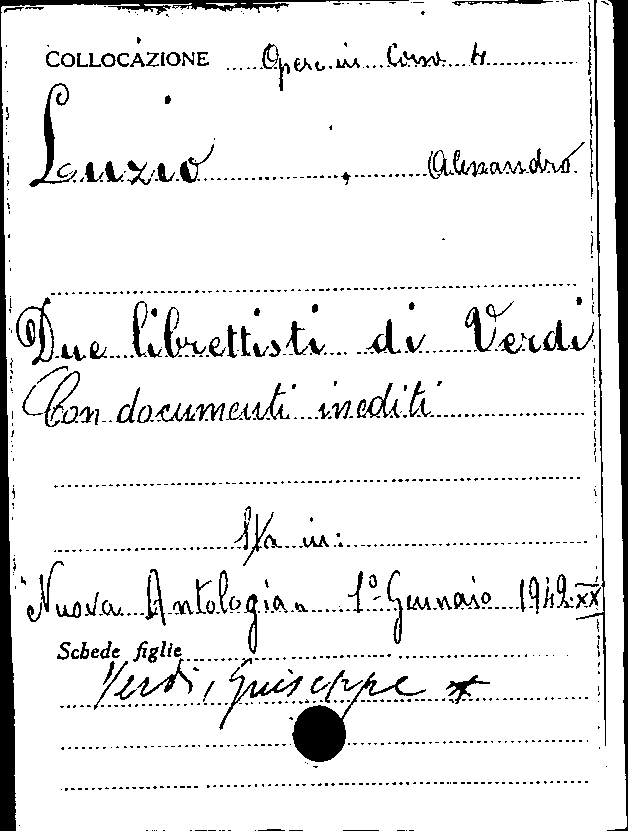 COLLOCAZIONE Opere in Corso 4
Luzio, Alessandro
Due librettisti di Verdi
Con documenti inediti
Sta in:
Nuova Antologia. 1º Gennaio 1942. XX
Schede figlie
Verdi, Giuseppe *